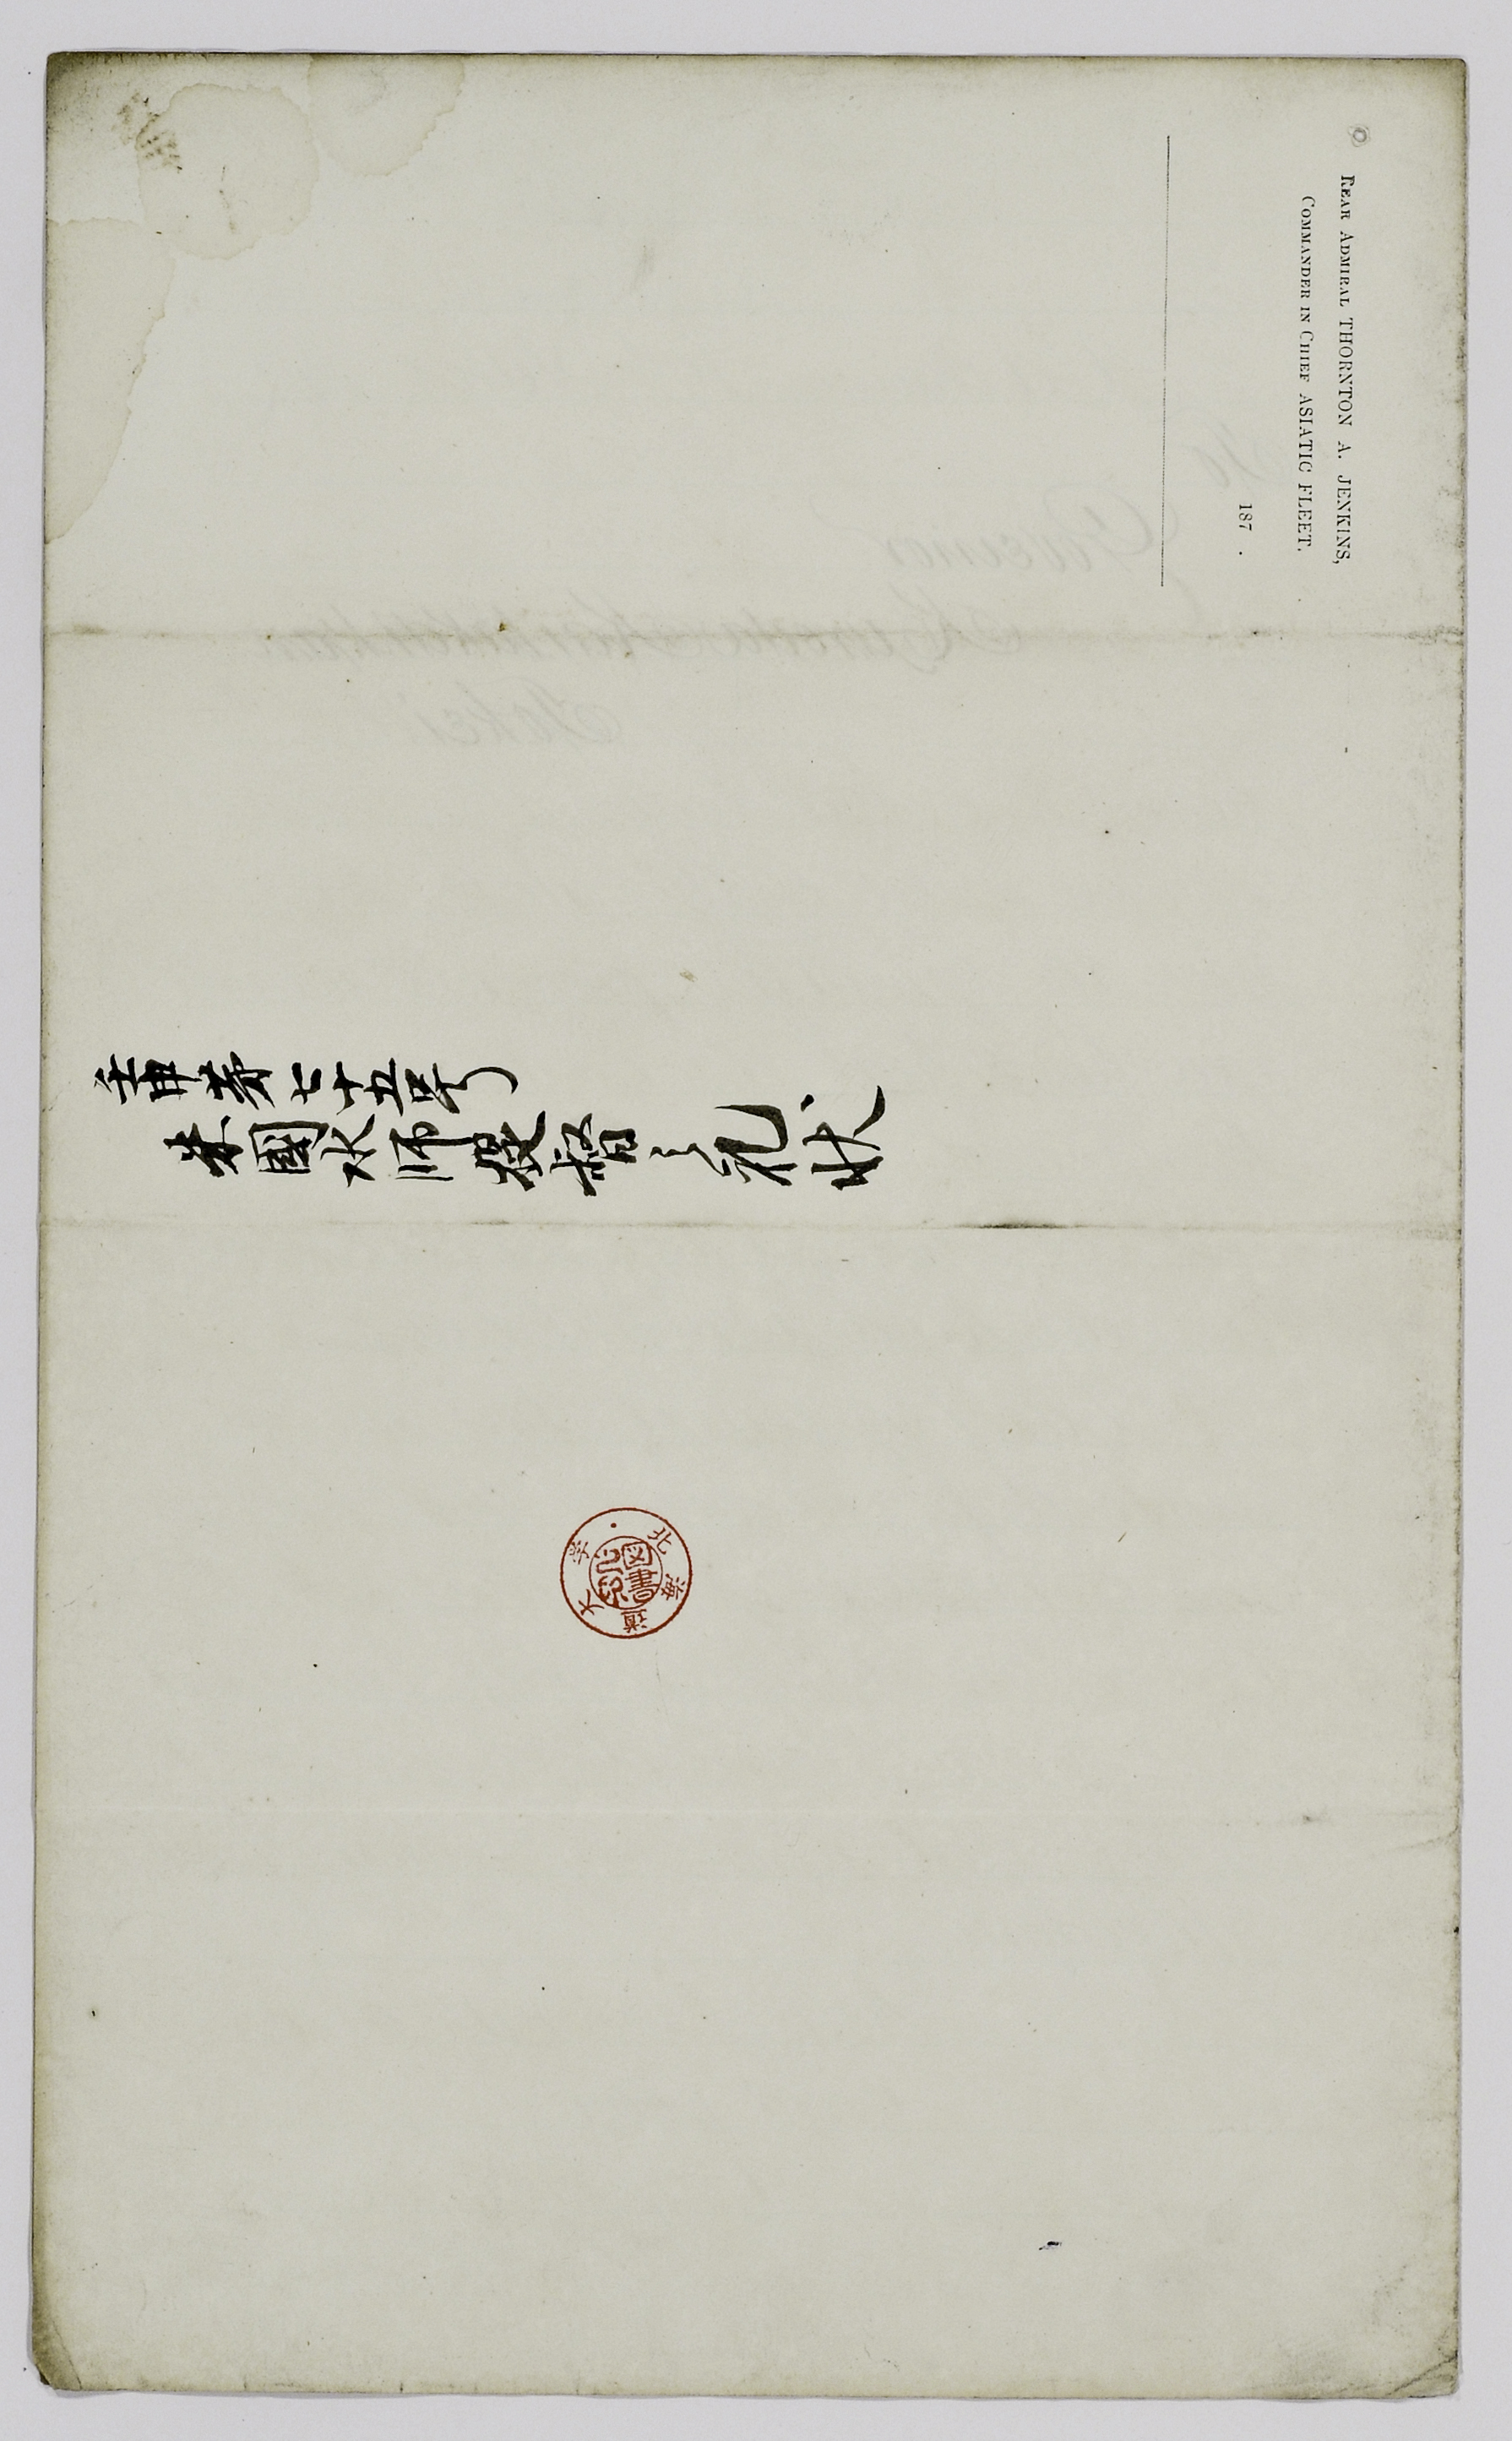 Rear Admiral THORNTON A. JENKINS,
Commander in Chief ASIATIC FLEET.
187 .
壬申第七十五号
米國水師提督之礼状
北海道大学
図書